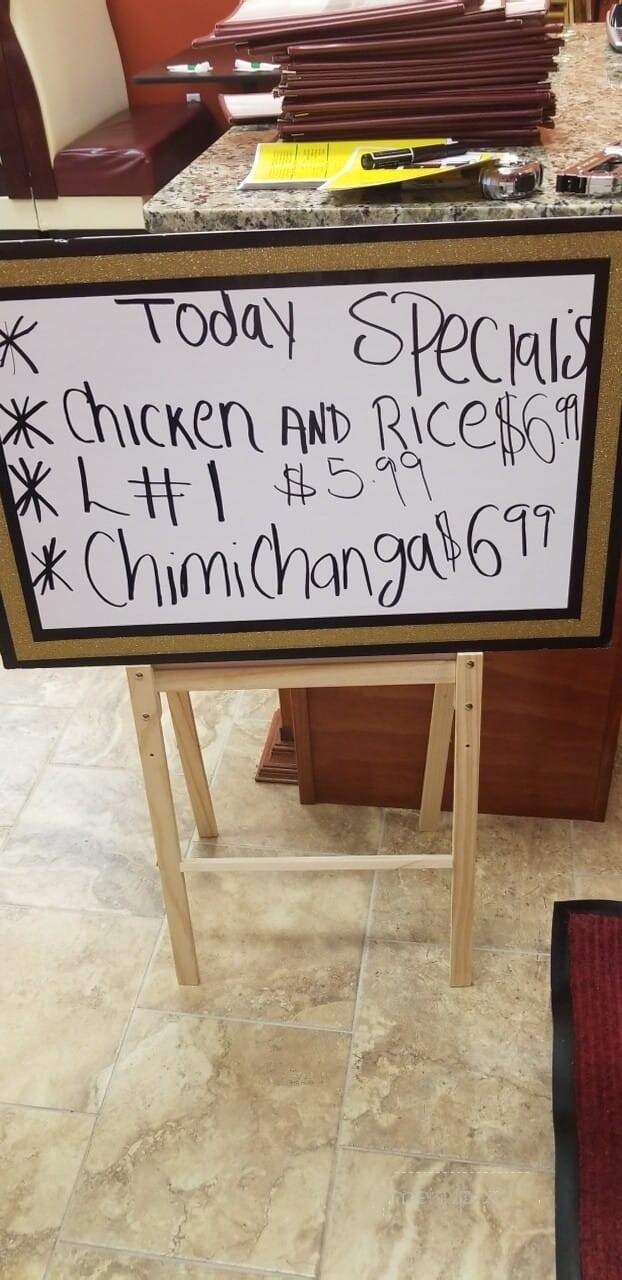 * Today Specials
* Chicken AND Rice $6.99
* L #1 $5.99
* Chimichanga $6 99